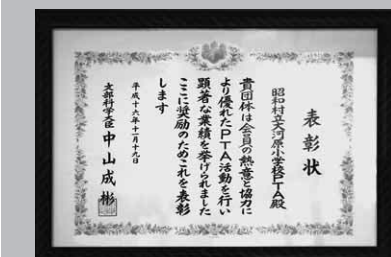 表彰状
昭和村立大河原小学校PTA殿
貴団体は会員の熱意と協力に
より優れたPTA活動を行い
顕著な業績を挙げられました
ここに奨励のためこれを表彰
します
平成十六年十一月十九日
文部科学大臣 中山成彬